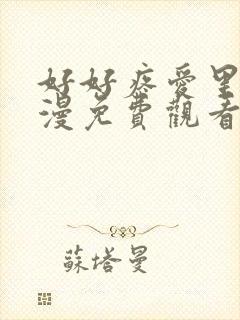 好好疼愛里
漫免費觀看
蘇塔曼